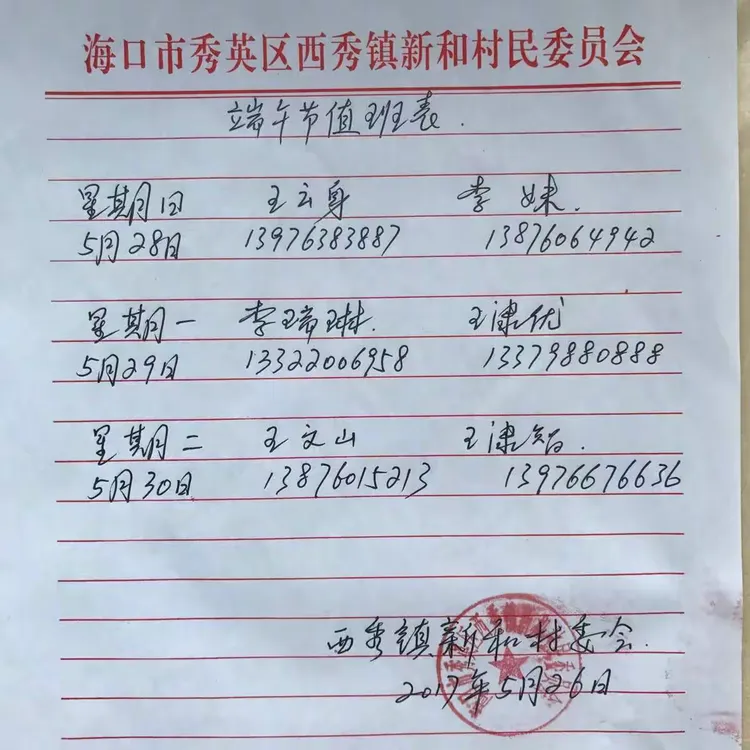 海口市秀英区西秀镇新和村民委员会
端午节值班表.
星期日 王云身 李妹.
5月28日 13976383887 13876064942
星期一 李瑞琳. 王康优
5月29日 13322006958 13379880888
星期二 王文山 王康
5月30日 13876015213 13976676636
西秀镇新和村委会.
2017年5月26日